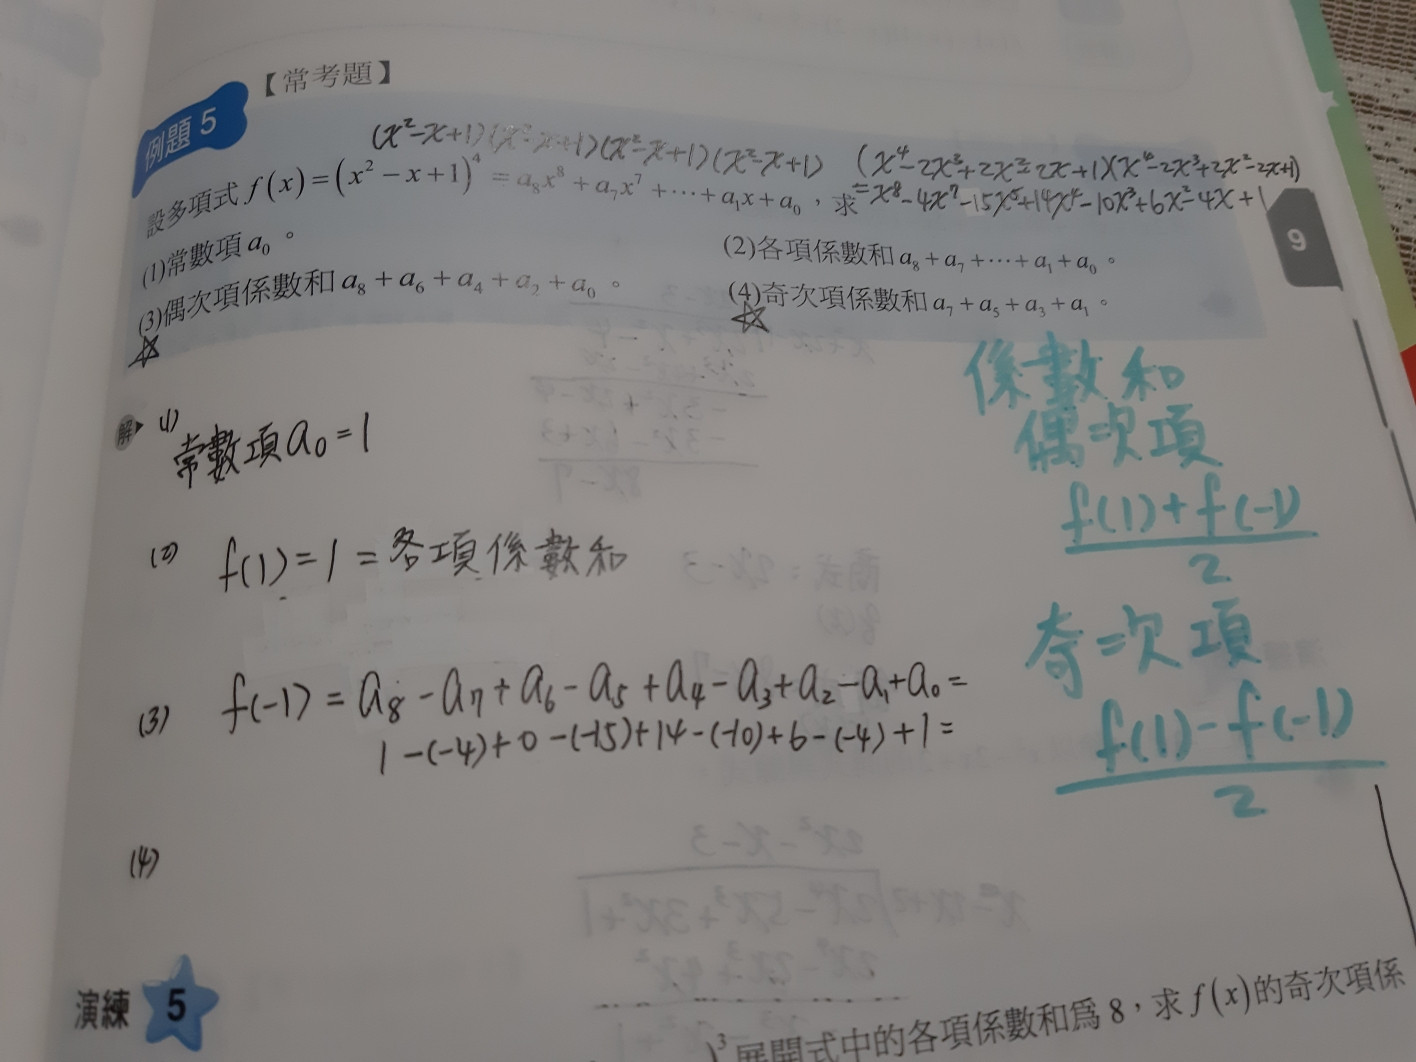 【常考題】
例題 5
(x²-x+1)(x²-x+1)(x²-x+1)(x²-x+1) (x⁴-2x³+2x²-2x+1)(x⁴-2x³+2x²-2x+1)
設多項式 f(x)=(x²-x+1)⁴=a₈x⁸+a₇x⁷+⋯+a₁x+a₀,求
=x⁸-4x⁷-15x⁵+14x⁴-10x³+6x²-4x+1
(1)常數項 a₀。
(2)各項係數和 a₈+a₇+⋯+a₁+a₀。
(3)偶次項係數和 a₈+a₆+a₄+a₂+a₀。
(4)奇次項係數和 a₇+a₅+a₃+a₁。
9
解 (1)
常數項a₀=1
(2) f(1)=1=各項係數和
(3) f(-1)=a₈-a₇+a₆-a₅+a₄-a₃+a₂-a₁+a₀=
1-(-4)+0-(-15)+14-(-10)+6-(-4)+1=
(4)
係數和
偶次項
f(1)+f(-1)
2
奇次項
f(1)-f(-1)
2
演練 5
)³展開式中的各項係數和為 8,求 f(x)的奇次項係